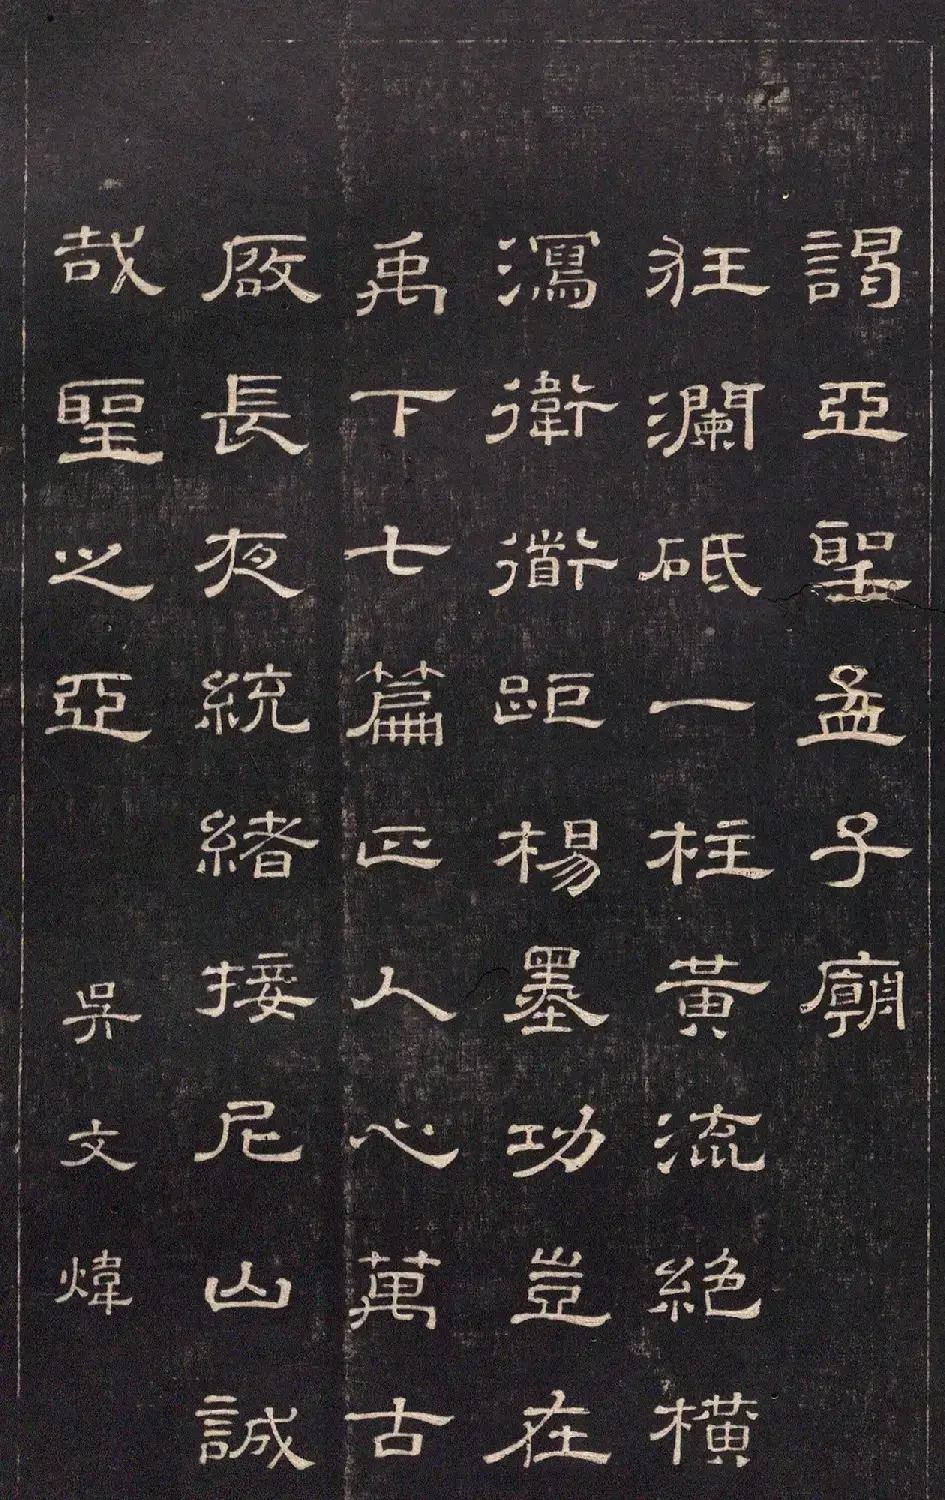 謁亞聖孟子廟
狂瀾砥一柱黃流絕橫
瀉衛衜距楊墨功豈在
禹下七篇正人心萬古
啟長夜統緒接尼山誠
哉聖之亞　吳文煒